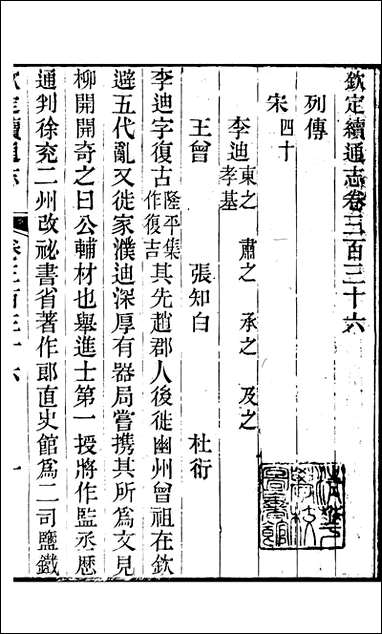 欽定續通志卷三百三十六
列傳
宋四十
李迪 東之 肅之 承之 及之 孝基
王曾 張知白 杜衍
李迪字復古隆平集作復吉其先趙郡人後徙幽州曾祖在欽
避五代亂又徙家濮迪深厚有器局嘗携其所爲文見
柳開開奇之曰公輔材也舉進士第一授將作監丞歷
通判徐兖二州改祕書省著作郎直史館爲二司鹽鐵
欽定續通志 卷三百三十六 一
清華學校圖書館